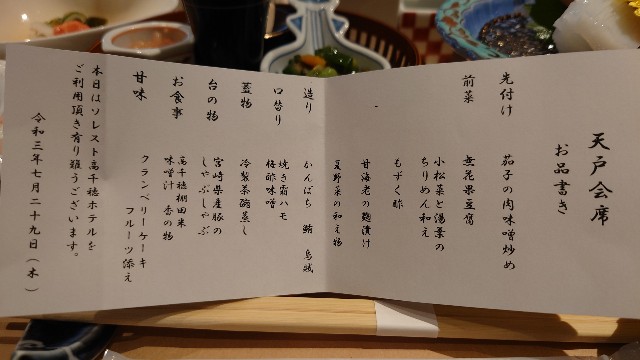 天戸会席
お品書き
先付け
茄子の肉味噌炒め
前菜
無花果豆腐
小松菜と湯葉の
ちりめん和え
もずく酢
甘海老の麹漬け
夏野菜の和え物
造り
かんぱち 鮪 烏賊
口替り
焼き霜ハモ
梅酢味噌
蓋物
冷製茶碗蒸し
台の物
宮崎県産豚の
しゃぶしゃぶ
お食事
高千穂棚田米
味噌汁 香の物
甘味
クランベリーケーキ
フルーツ添え
本日はソレスト高千穂ホテルを
ご利用頂き有り難うございます。
令和三年七月二十九日(木)